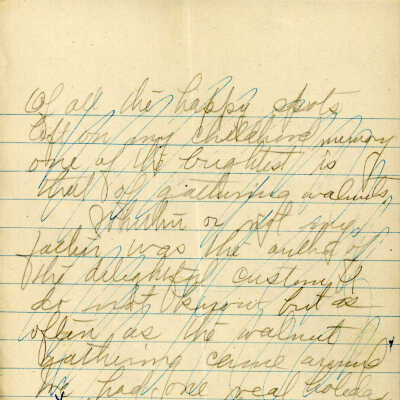 Of all the happy spots
left on my childhood memory
one of the brightest is
that of gathering walnuts,
Whether or not my
father was the author of
the delightful custom I
do not know but as
often as the walnut
gathering came around
we had one real holiday